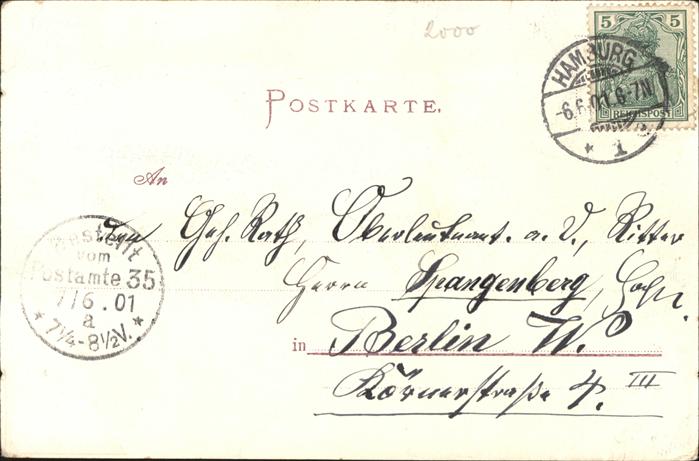 2000
5 5
REICHSPOST
HAMBURG
-6.6.01.6-7N
* 1
POSTKARTE.
An
Geh. Rath, Oberleutnant. a. D., Ritter
Herrn Spangenberg,
in Berlin W.
Körnerstraße 4. III
Bestellt
vom
Postamte 35
7/6.01
a
* 7¼-8½V. *